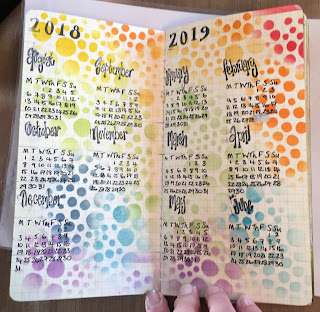 2018
August
M T W Th F S Su
1 2 3 4 5
6 7 8 9 10 11 12
13 14 15 16 17 18 19
20 21 22 23 24 25 26
27 28 29 30 31
September
M T W Th F S Su
1 2
3 4 5 6 7 8 9
10 11 12 13 14 15 16
17 18 19 20 21 22 23
24 25 26 27 28 29 30
October
M T W Th F S Su
1 2 3 4 5 6 7
8 9 10 11 12 13 14
15 16 17 18 19 20 21
22 23 24 25 26 27 28
29 30 31
November
M T W Th F S Su
1 2 3 4
5 6 7 8 9 10 11
12 13 14 15 16 17 18
19 20 21 22 23 24 25
26 27 28 29 30
M T W Th F S Su
1 2
3 4 5 6 7 8 9
10 11 12 13 14 15 16
17 18 19 20 21 22 23
24 25 26 27 28 29 30
31
2019
January
M T W Th F S Su
1 2 3 4 5 6
7 8 9 10 11 12 13
14 15 16 17 18 19 20
21 22 23 24 25 26 27
28 29 30 31
February
M T W Th F S Su
1 2 3
4 5 6 7 8 9 10
11 12 13 14 15 16 17
18 19 20 21 22 23 24
25 26 27 28
March
M T W Th F S Su
1 2 3
4 5 6 7 8 9 10
11 12 13 14 15 16 17
18 19 20 21 22 23 24
25 26 27 28 29 30 31
April
M T W Th F S Su
1 2 3 4 5 6 7
8 9 10 11 12 13 14
15 16 17 18 19 20 21
22 23 24 25 26 27 28
29 30
May
M T W Th F S Su
1 2 3 4 5
6 7 8 9 10 11 12
13 14 15 16 17 18 19
20 21 22 23 24 25 26
27 28 29 30 31
June
M T W Th F S Su
1 2
3 4 5 6 7 8 9
10 11 12 13 14 15 16
17 18 19 20 21 22 23
24 25 26 27 28 29 30